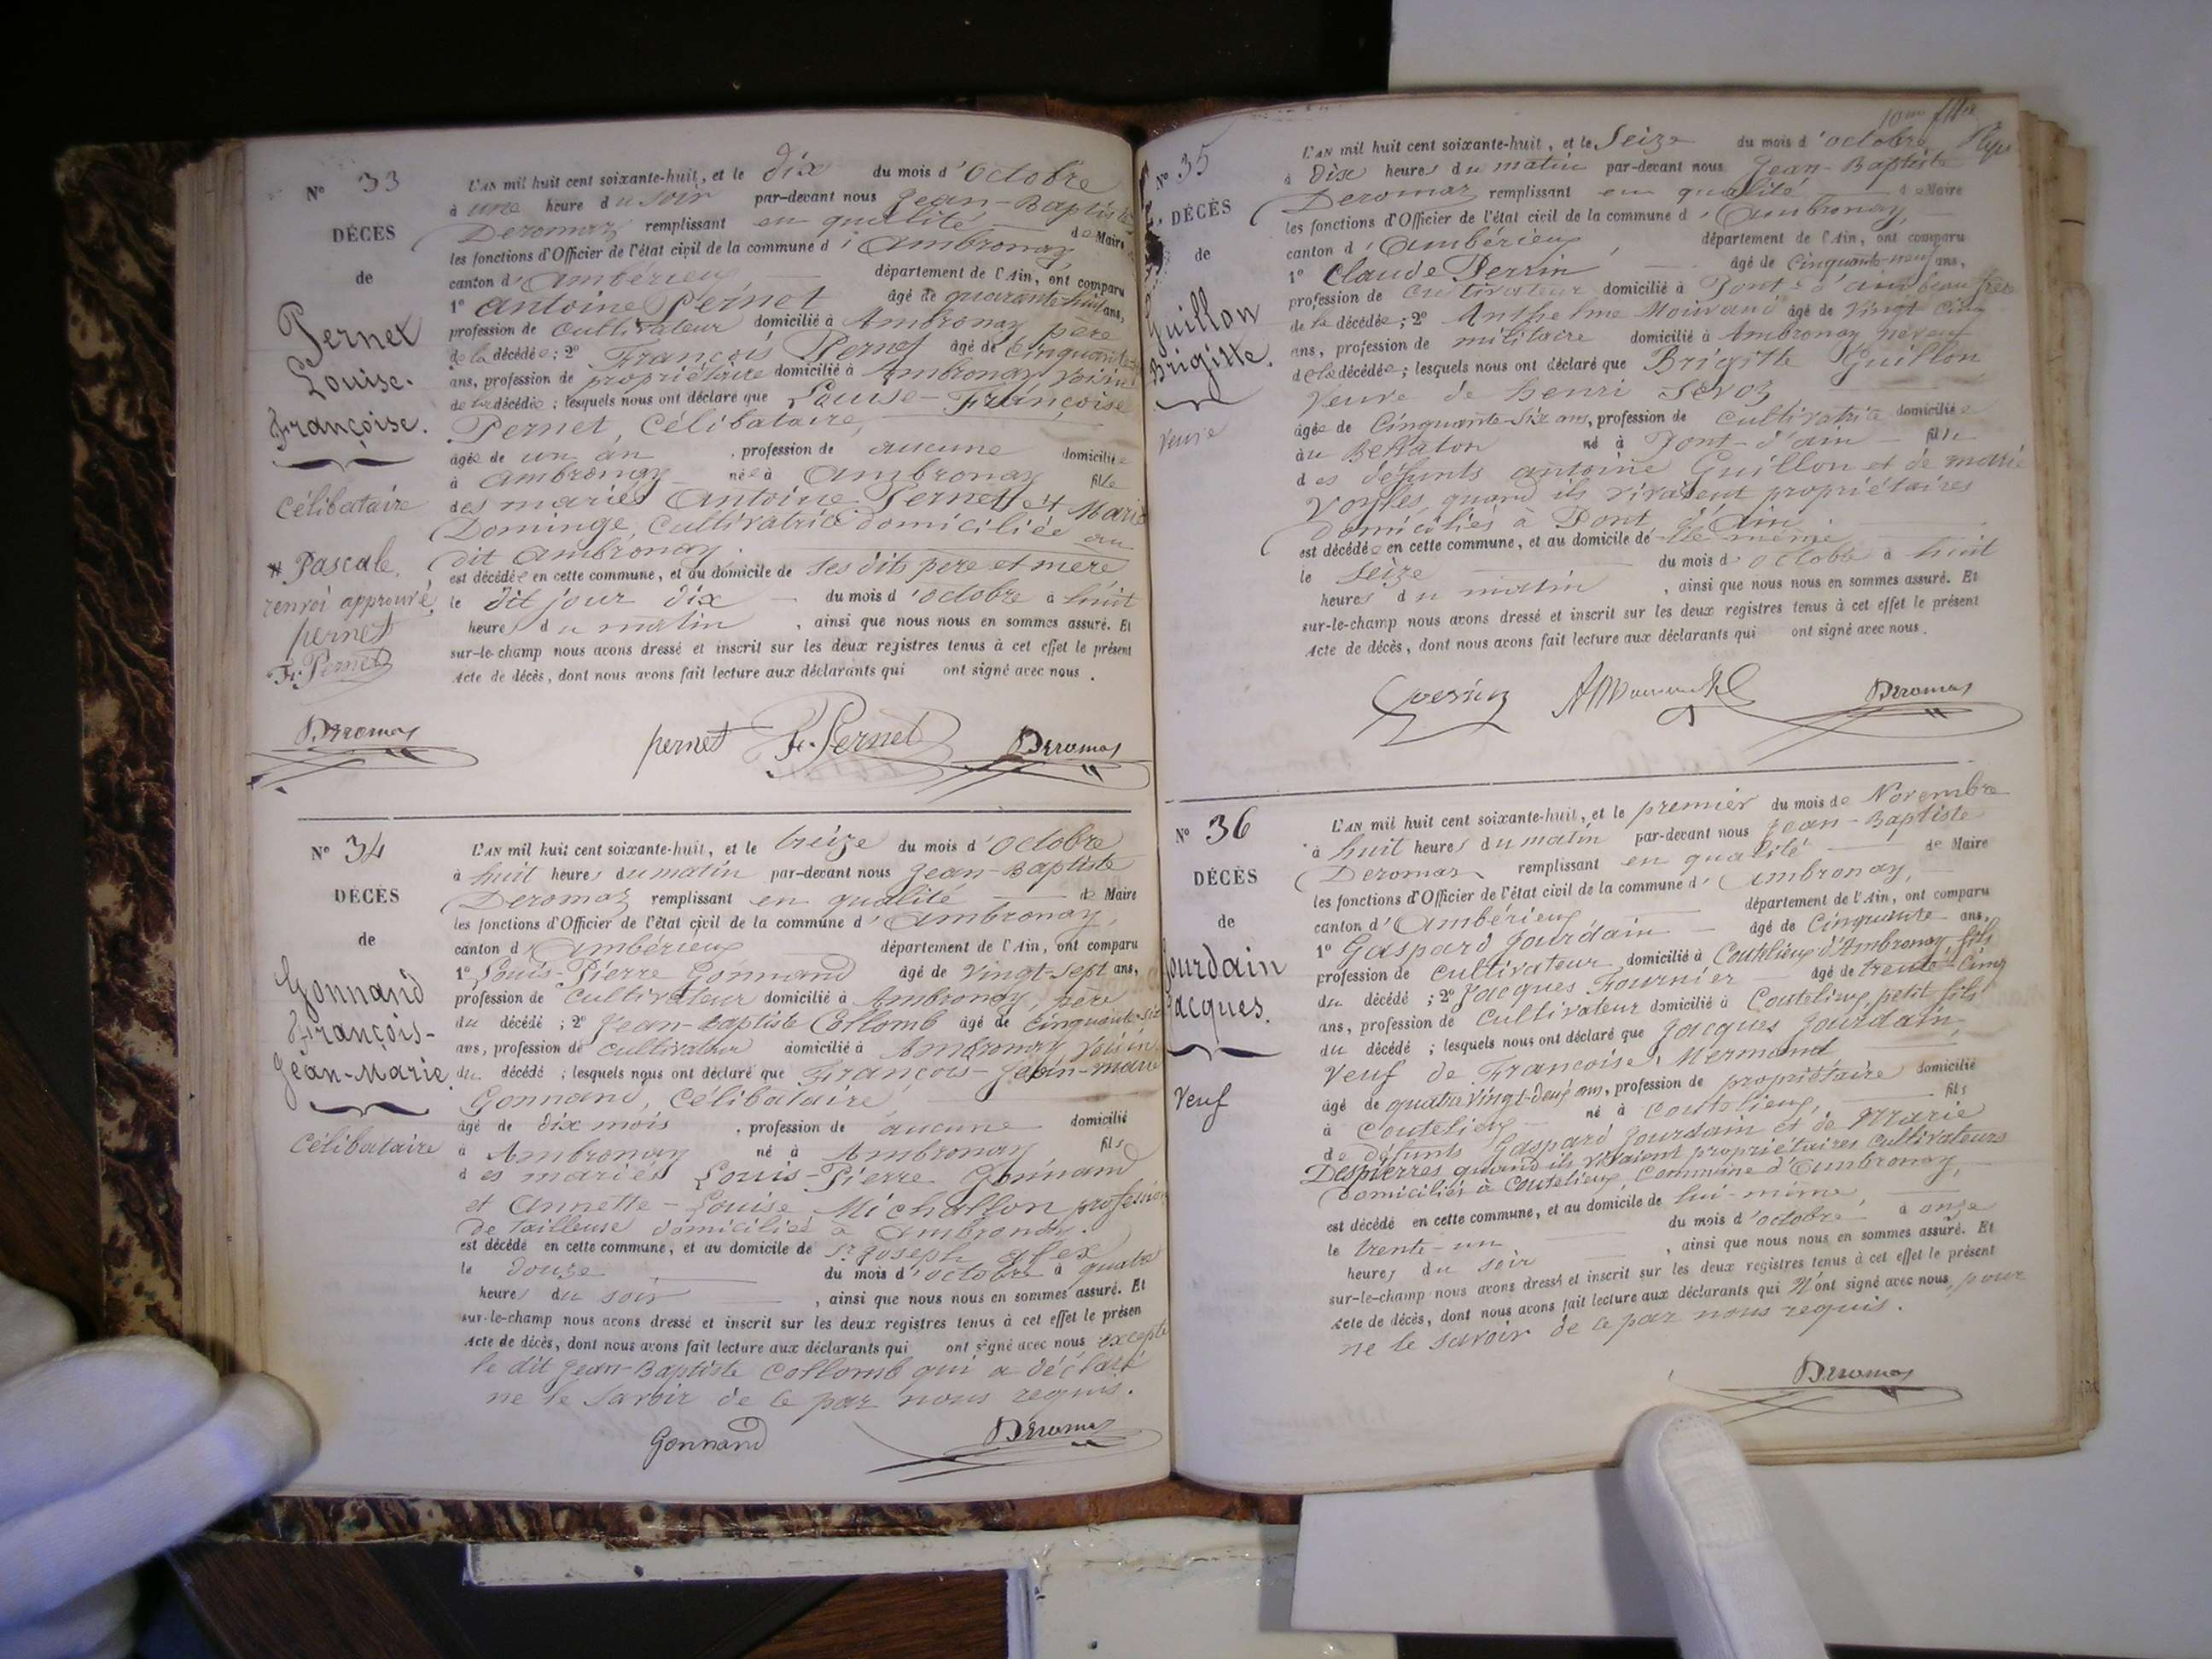 N° 33
DÉCÈS
de
Pernet
Louise-
Françoise.
Célibataire
* Pascale,
renvoi approuvé,
pernet
F. Pernet
Deromas
L'AN mil huit cent soixante-huit, et le dix du mois d'Octobre
à une heure du soir par-devant nous Jean-Baptiste
Deromas remplissant en qualité de Maire
les fonctions d'Officier de l'état civil de la commune d'Ambronay
canton d'Ambérieux département de l'Ain, ont comparu
1° Antoine Pernet âgé de quarante-huit ans,
profession de cultivateur domicilié à Ambronay père
de la décédée; 2° François Pernet âgé de Cinquante
ans, profession de propriétaire domicilié à Ambronay voisin
de la décédée; lesquels nous ont déclaré que Louise-Françoise
Pernet, Célibataire,
âgée de un an, profession de aucune domiciliée
à Ambronay née à Ambronay fille
des mariés Antoine Pernet et * Marie
Dominge, Cultivatrice domiciliée au
dit Ambronay
est décédée en cette commune, et au domicile de ses dits père et mère
le dit jour dix du mois d'octobre à huit
heures du matin, ainsi que nous nous en sommes assuré. Et
sur-le-champ nous avons dressé et inscrit sur les deux registres tenus à cet effet le présent
Acte de décès, dont nous avons fait lecture aux déclarants qui ont signé avec nous.
pernet F. Pernet Deromas
N° 34
DÉCÈS
de
Gonnand
François-
Jean-Marie.
Célibataire
L'AN mil huit cent soixante-huit, et le treize du mois d'Octobre
à huit heures du matin par-devant nous Jean-Baptiste
Deromas remplissant en qualité de Maire
les fonctions d'Officier de l'état civil de la commune d'Ambronay,
canton d'Ambérieux département de l'Ain, ont comparu
1° Louis-Pierre Gonnand âgé de vingt-sept ans,
profession de cultivateur domicilié à Ambronay, père
du décédé; 2° Jean-Baptiste Collomb âgé de cinquante-six
ans, profession de cultivateur domicilié à Ambronay voisin
du décédé; lesquels nous ont déclaré que François-Jean-Marie
Gonnand, Célibataire,
âgé de dix mois, profession de aucune domicilié
à Ambronay né à Ambronay fils
des mariés Louis-Pierre Gonnand
et Annette-Louise Michallon profession
de tailleuse domiciliés à Ambronay.
est décédé en cette commune, et au domicile de Sr Joseph
le douze du mois d'octobre à quatre
heures du soir, ainsi que nous nous en sommes assuré. Et
sur-le-champ nous avons dressé et inscrit sur les deux registres tenus à cet effet le présen
Acte de décès, dont nous avons fait lecture aux déclarants qui ont signé avec nous excepté
le dit Jean-Baptiste Collomb qui a déclaré
ne le savoir de ce par nous requis.
Gonnand Deromas
N° 35
DÉCÈS
de
Guillon
Brigitte.
Veuve
L'AN mil huit cent soixante-huit, et le Seize du mois d'octobre
à dix heures du matin par-devant nous Jean-Baptiste
Deromas remplissant en qualité de Maire
les fonctions d'Officier de l'état civil de la commune d'Ambronay,
canton d'Ambérieux, département de l'Ain, ont comparu
1° Claude Perrin âgé de Cinquante-neuf ans,
profession de Cultivateur domicilié à Pont-d'ain beau frère
de la décédée; 2° Anthelme âgé de vingt cinq
ans, profession de militaire domicilié à Ambronay neveu
de la décédée; lesquels nous ont déclaré que Brigitte Guillon
Veuve de henri
âgée de Cinquante-six ans, profession de cultivatrice domiciliée
au né à Pont-d'ain fille
des défunts antoine Guillon et de marie
quand ils vivaient propriétaires
domiciliés à Pont d'Ain
est décédée en cette commune, et au domicile de elle même
le seize du mois d'octobre à huit
heures du matin, ainsi que nous nous en sommes assuré. Et
sur-le-champ nous avons dressé et inscrit sur les deux registres tenus à cet effet le présent
Acte de décès, dont nous avons fait lecture aux déclarants qui ont signé avec nous.
Deromas
N° 36
DÉCÈS
de
Jourdain
Jacques.
Veuf
L'AN mil huit cent soixante-huit, et le premier du mois de Novembre
à huit heures du matin par-devant nous Jean-Baptiste
Deromas remplissant en qualité de Maire
les fonctions d'Officier de l'état civil de la commune d'Ambronay,
canton d'Ambérieux, département de l'Ain, ont comparu
1° Gaspard Jourdain âgé de Cinquante ans,
profession de cultivateur domicilié à Coutelieux d'Ambronay, fils
du décédé; 2° Jacques Fournier âgé de trente-cinq
ans, profession de cultivateur domicilié à Coutelieux, petit fils
du décédé; lesquels nous ont déclaré que Jacques Jourdain,
Veuf de Francoise Mermand
âgé de quatre vingt-deux ans, profession de propriétaire domicilié
à Coutelieux né à Coutelieux, fils
de défunts Gaspard Jourdain et de Marie
Despierres quand ils vivaient propriétaires cultivateurs
domiciliés à Coutelieux, commune d'Ambronay,
est décédé en cette commune, et au domicile de lui-même,
le trente-un du mois d'octobre à onze
heures du soir, ainsi que nous nous en sommes assuré. Et
sur-le-champ nous avons dressé et inscrit sur les deux registres tenus à cet effet le présent
Acte de décès, dont nous avons fait lecture aux déclarants qui n'ont signé avec nous, pour
ne le savoir de ce par nous requis.
Deromas